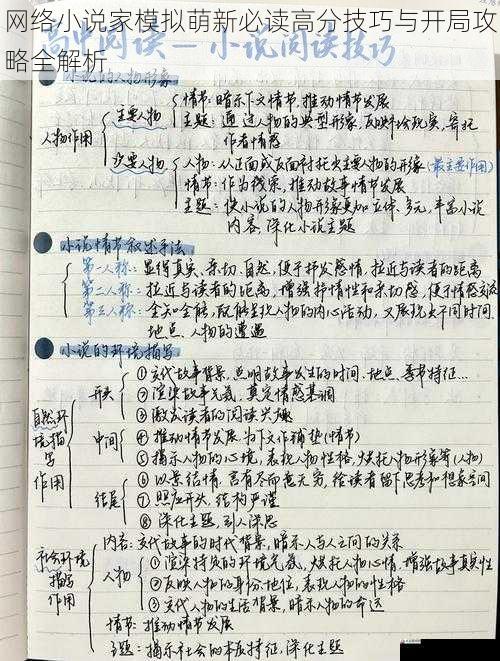 网络小说家模拟萌新必读高分技巧与开局攻
略全解析
高中阅读—小说阅读技巧
小说的人物形象
人物作用
主要人物
情节：暗示下文情节，推动情节发展
主题：通过人物的典型形象，反映社会现实，寄托
作者情感
次要人物
人物：从正面或反面衬托主要人物的形象（最主要作用）
情节：作为线索，推动故事情节发展
主题：使小说的人物形象更加立体、多元，丰富小说
内容，深化小说主题
小说情节叙述手法
第一人称：显得真实、亲切、自然，便于抒发感情，拉近与读者的距离
第二人称：拉近与读者的距离，增强抒情性和亲切感，便于情感交流
第三人称：全知全能，既能呈现人物的内心活动，又展现出不同时间、
地点、人物的遭遇
小说的环境描写
自然环
境描写
作用
开头
①交代故事背景，点明故事发生的时间、地点、季节特征…
②渲染故事气氛，奠定情感基调
③激发读者的阅读兴趣
中间
④推动情节发展，为下文作铺垫(情节)
⑤揭示人物的心境，表现人物性格，烘托人物形象等(人物)
结尾
⑥以景结情，言有尽而意无穷，给读者留下思考和想象空间
⑦照应开头，结构严谨
⑧深化主题，引人深思
社会环境
描写
作用
内容：交代故事的时代背景，暗示人与人之间的关系
人物
①渲染特定的环境气氛，烘托人物心情，增强故事真实性
②反映人物的身份、地位，表现人物的性格
③交代人物的生活背景，暗示人物的命运
情节：推动情节发展
主题：揭示社会的本质特征，深化主题